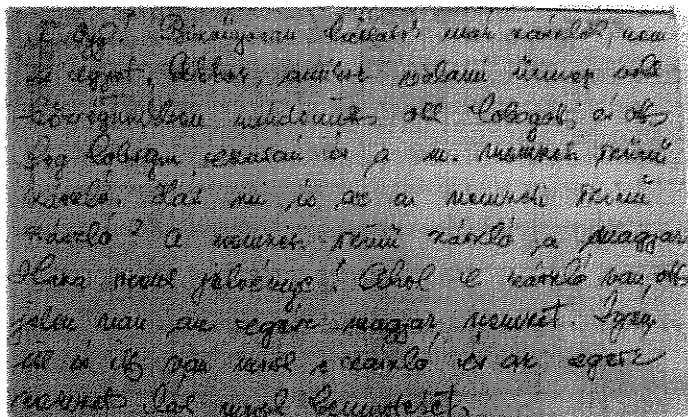 Bizonyosan láttatok már zászlót, nem
is egyet. Akkor, amikor valami ünnep volt
községünkben mindenütt ott lobogott és ott
fog lobogni ezután is a m. nemzeti színű
zászló. Hát mi is az a nemzeti színű
zászló? A nemzeti színű zászló a magyar
Haza jelvénye! Ahol e zászló van, ott
jelen van az egész magyar nemzet. Igen,
itt is van e zászló és az egész
nemzet lát benneteket.